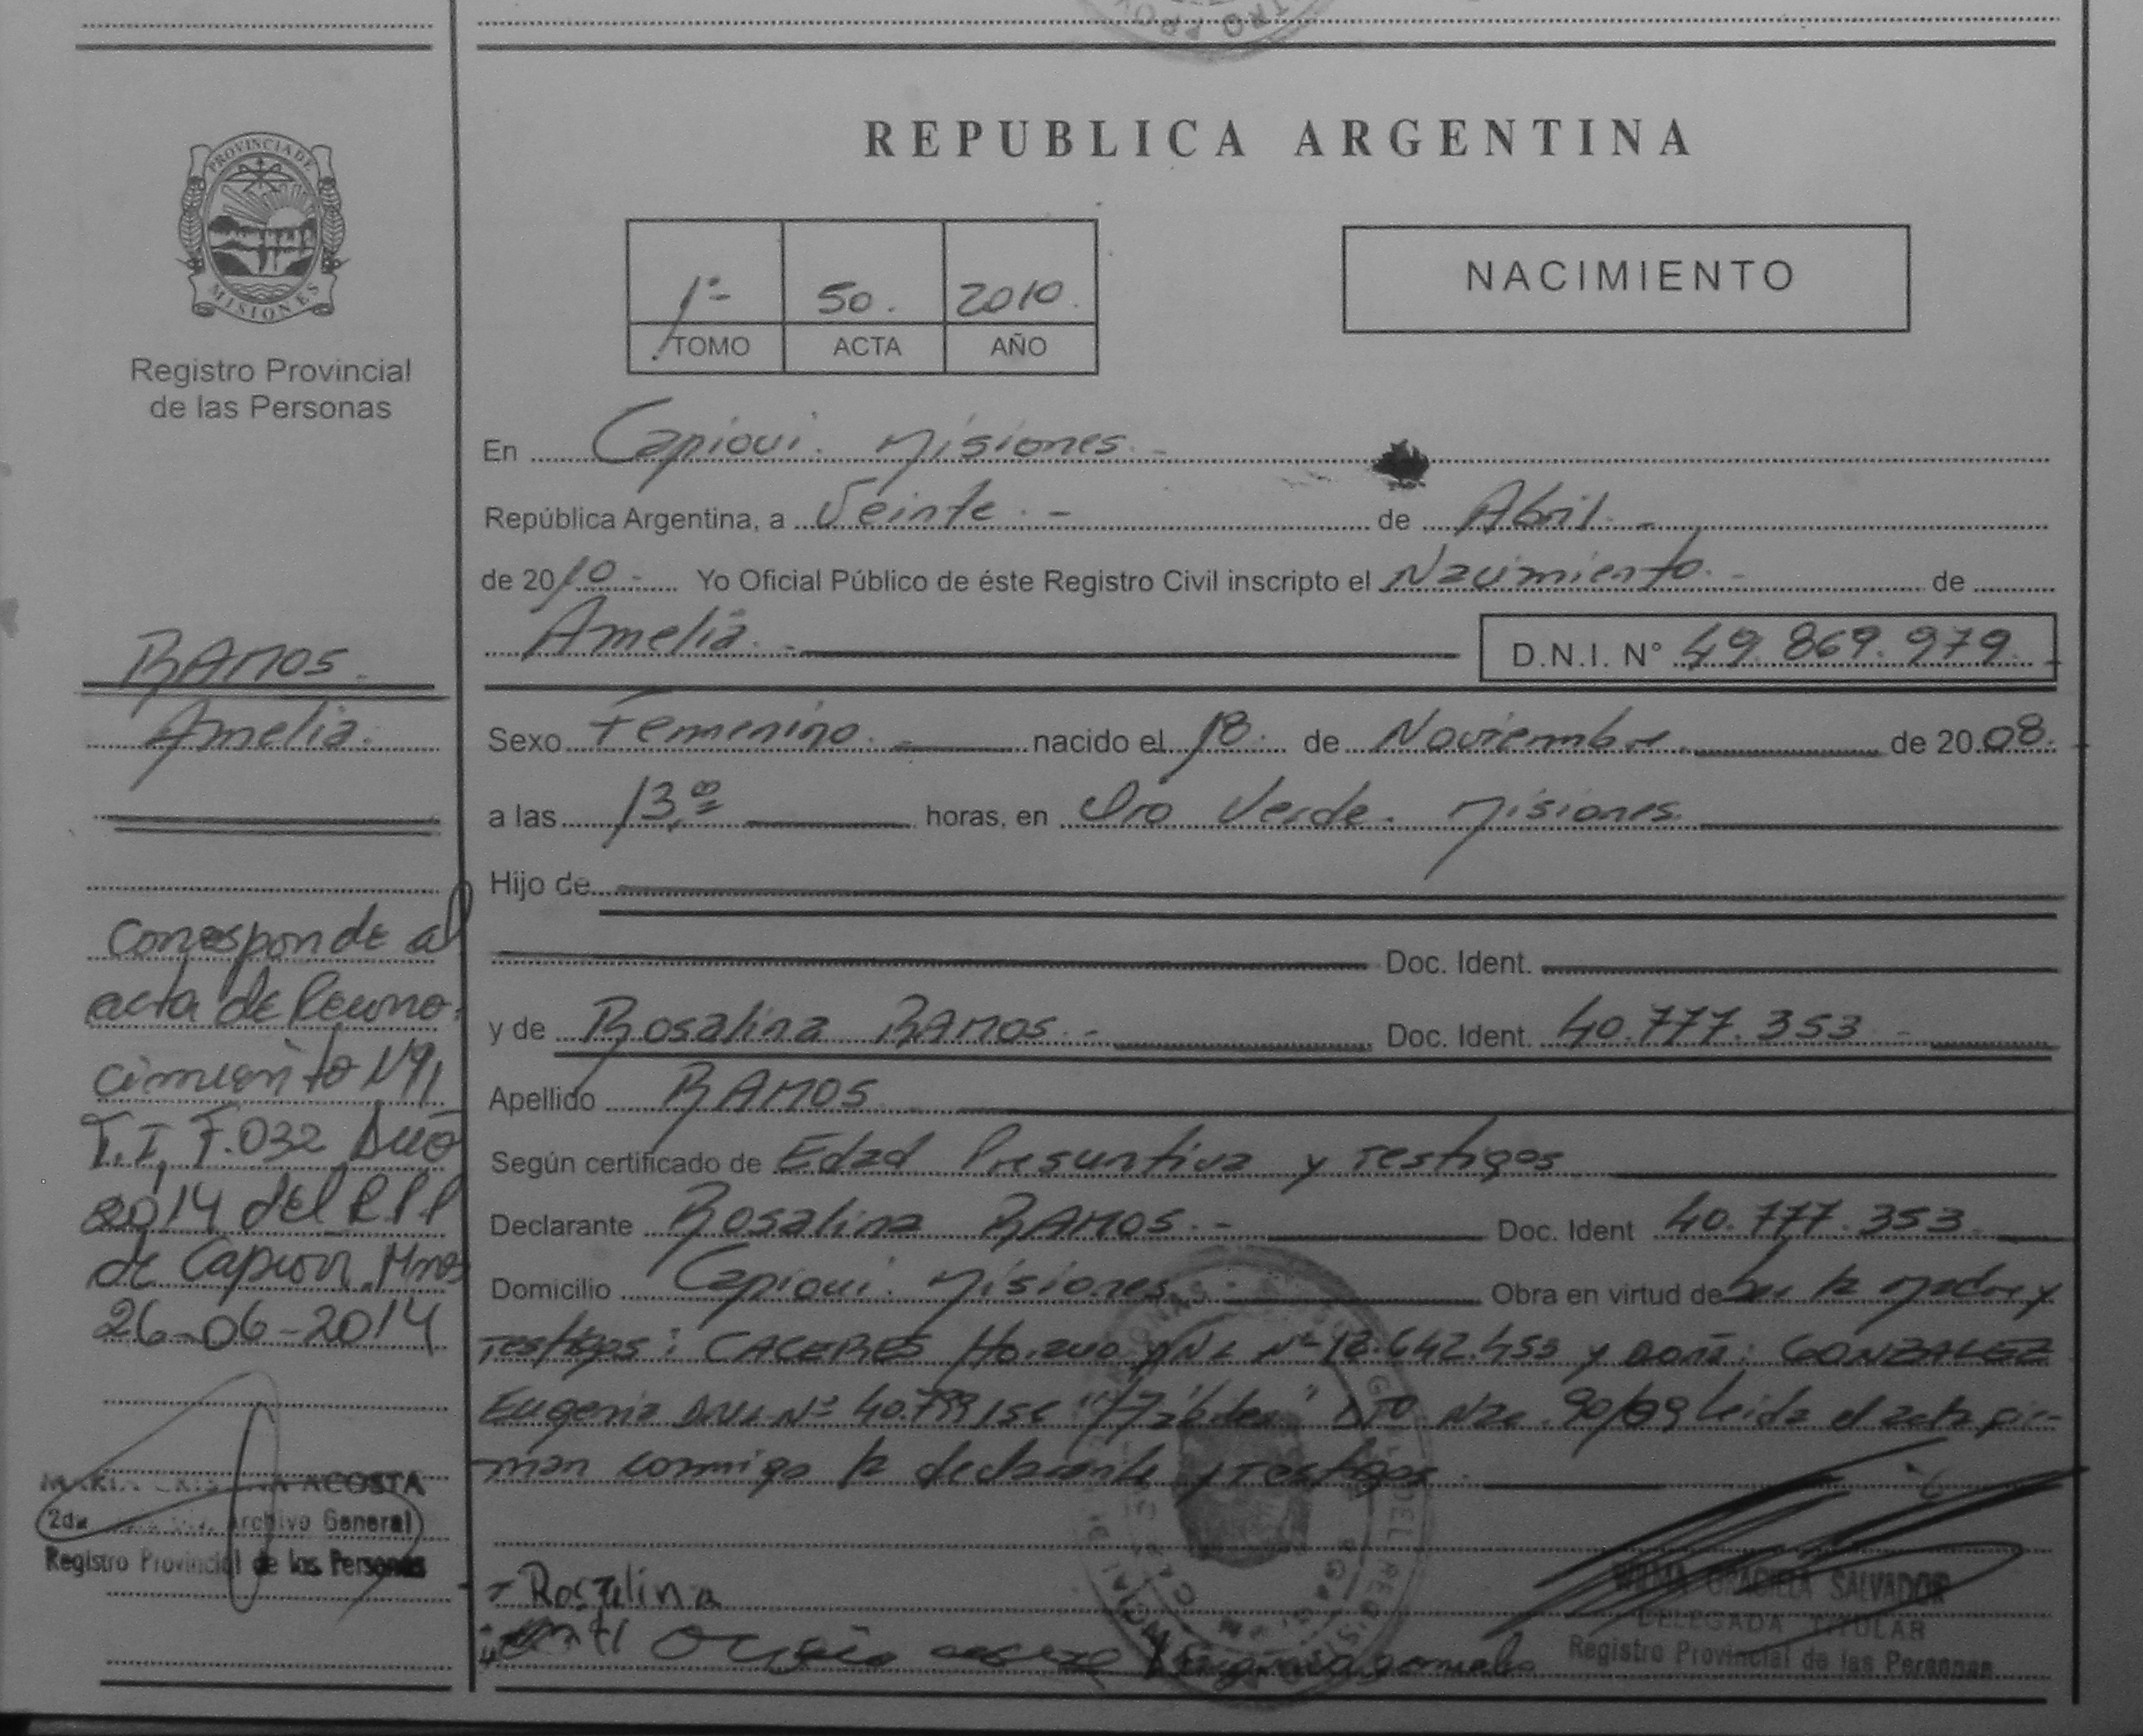 PROVINCIA DE
MISIONES
Registro Provincial
de las Personas
RAMOS.
Amelia.
Corresponde al
acta de Recono-
cimiento Nº1,
T.I, F.032 Año
2014 del R.P.P
de Capiovi. Mnes
26-06-2014
ACOSTA
2da Archivo General
Registro Provincial de las Personas
REPUBLICA ARGENTINA
1º 50. 2010.
TOMO ACTA AÑO
NACIMIENTO
En Capiovi. Misiones.-
República Argentina, a Veinte.- de Abril.-
de 2010.- Yo Oficial Público de éste Registro Civil inscripto el Nacimiento.- de
Amelia.- D.N.I. N° 49.869.979.-
Sexo Femenino.- nacido el 18. de Noviembre. de 2008.-
a las 13,00 horas, en Oro Verde. Misiones.
Hijo de
Doc. Ident.
y de Rosalina RAMOS.- Doc. Ident. 40.777.353.-
Apellido RAMOS.
Según certificado de Edad Presuntiva y Testigos
Declarante Rosalina RAMOS.- Doc. Ident 40.777.353.
Domicilio Capiovi. Misiones. Obra en virtud de Ser la madre y
Testigos: CACERES Nº y Doña: GONZALEZ
Eugenia DNI. Nº 90/09 Leida el acta fir-
man conmigo la declarante y Testigos.
Rosalina
Eugenia gonzales
GRACIELA SALVADOR
DELEGADA TITULAR
Registro Provincial de las Personas